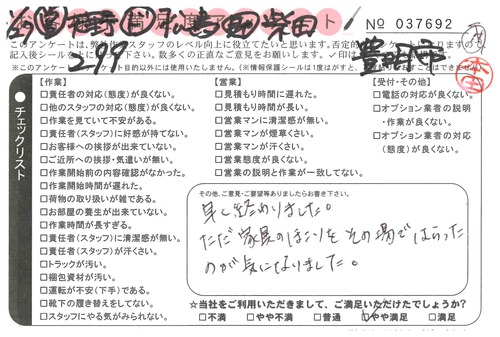 No 037692
2/19
豊田市
このアンケートは、弊社スタッフのレベル向上に役立てたいと思います。否定的
記入後シール
ご意見をお願いします。✓印は
※このアンケート目的以外には使用いたしません。(※情報保護シールは1度はがすと、
チェックリスト
【作業】
□責任者の対応(態度)が良くない。
□他のスタッフの対応(態度)が良くない。
□作業を見ていて不安がある。
□責任者(スタッフ)に好感が持てない。
□お客様への挨拶が出来ていない。
□ご近所への挨拶・気遣いが無い。
□作業開始前の内容確認がなかった。
□作業開始時間が遅れた。
□荷物の取り扱いが雑である。
□お部屋の養生が出来ていない。
□作業時間が長すぎる。
□責任者(スタッフ)に清潔感が無い。
□責任者(スタッフ)が汗くさい。
□トラックが汚い。
□梱包資材が汚い。
□運転が不安(下手)である。
□靴下の履き替えをしてない。
□スタッフにやる気がみられない。
【営業】
□見積もり時間に遅れた。
□見積もり時間が長い。
□営業マンに清潔感が無い。
□営業マンが煙草くさい。
□営業マンが汗くさい。
□営業態度が良くない。
□営業の説明と作業が一致してない。
【受付・その他】
□電話の対応が良くない。
□オプション業者の説明
・作業が良くない。
□オプション業者の対応
(態度)が良くない。
その他、ご意見・ご要望等ありましたらお書き下さい。
早く終わりました。
ただ家具のほこりをその場ではらった
のが気になりました。
☆当社をご利用いただきまして、ご満足いただけたでしょうか?
□不満 □やや不満 □普通 □やや満足 □満足